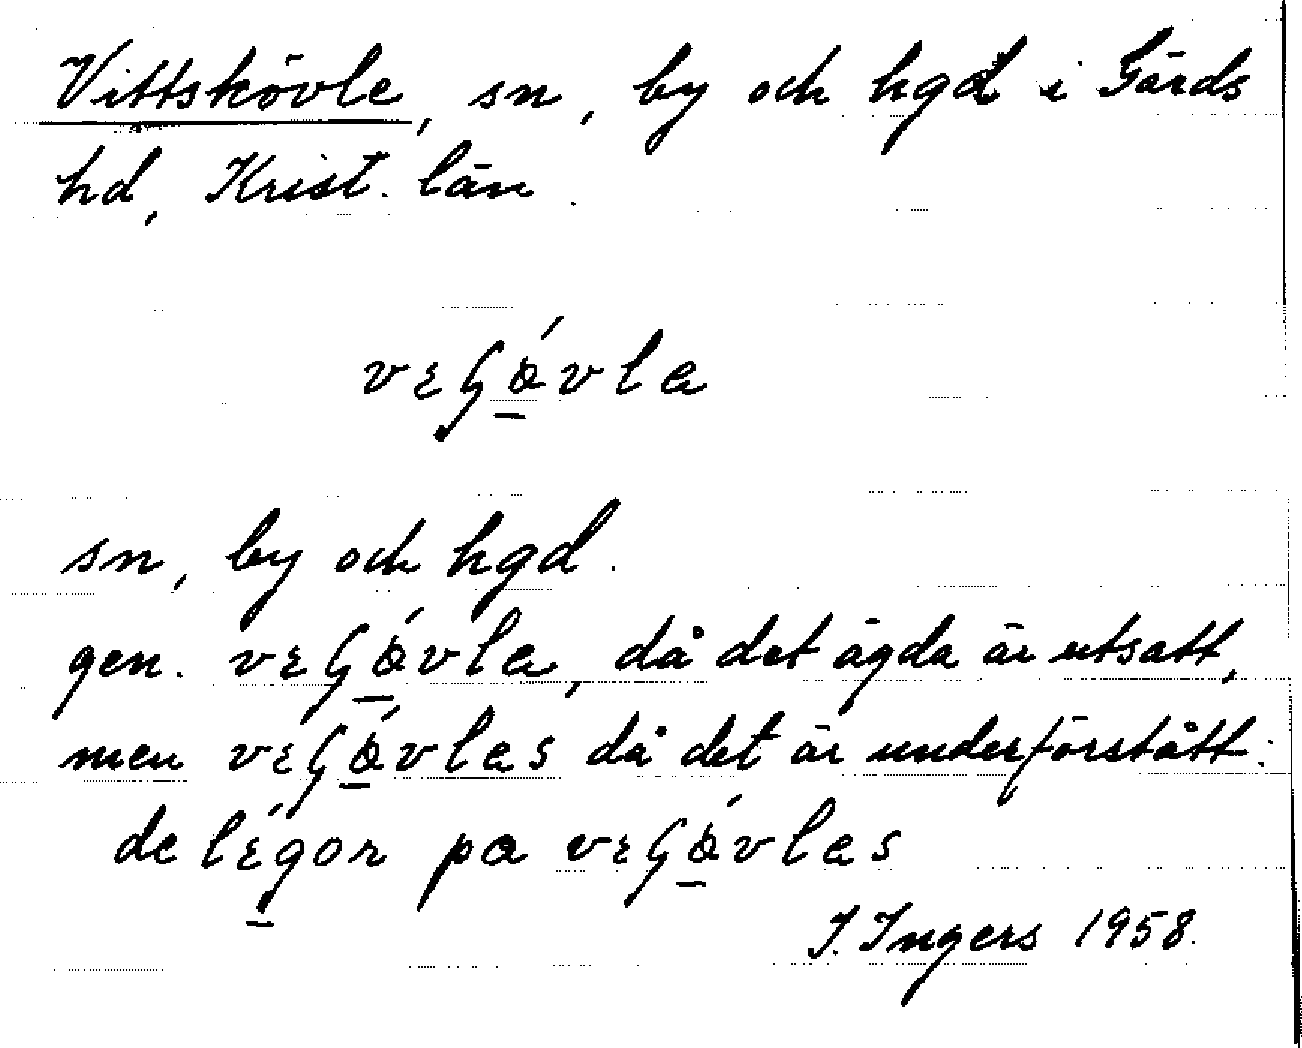 Vittskövle, sn, by och hgd i Gärds
hd, Krist. län.
vɛɕǿ̲vla
sn, by och hgd.
gen. vɛɕǿ̲vla, då det ägda är utsatt,
men vɛɕǿ̲vlas då det är underförstått:
de lɛ̲́gor pa vɛɕǿ̲vlas
I. Ingers 1958.